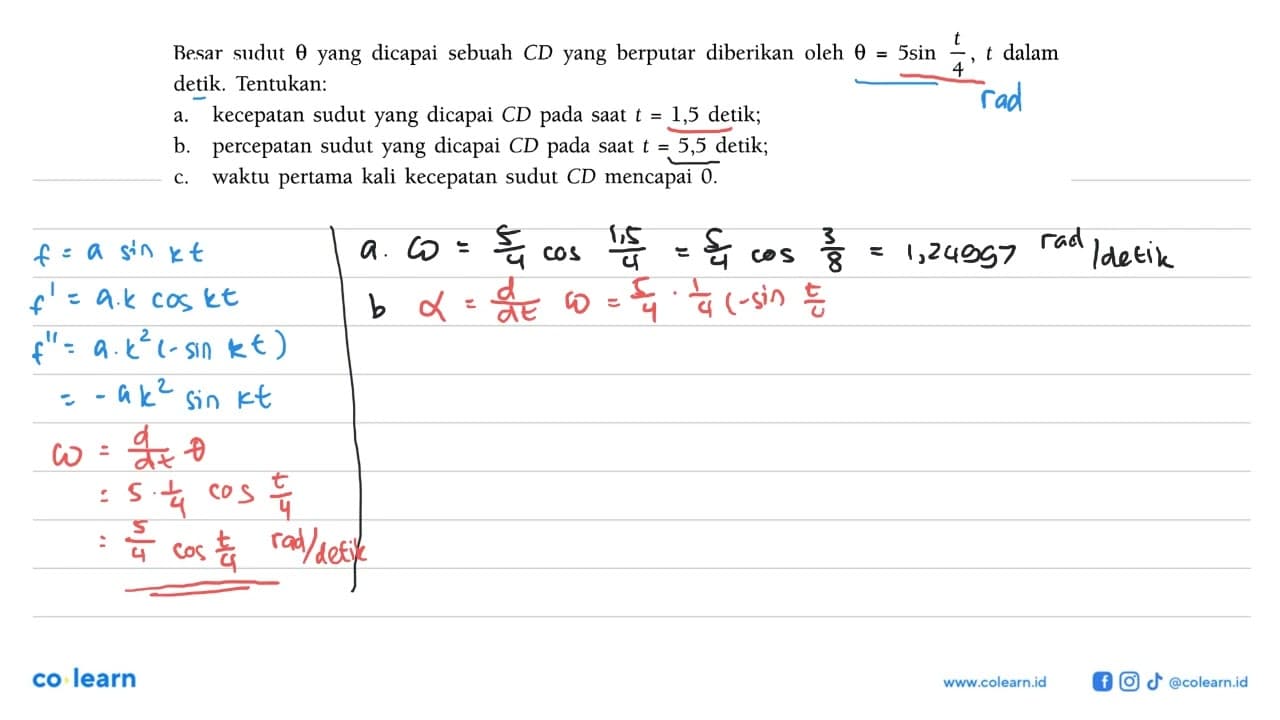 Besar sudut θ yang dicapai sebuah CD yang berputar diberikan oleh θ = 5sin t/4, t dalam
detik. Tentukan:
rad
a. kecepatan sudut yang dicapai CD pada saat t = 1,5 detik;
b. percepatan sudut yang dicapai CD pada saat t = 5,5 detik;
c. waktu pertama kali kecepatan sudut CD mencapai 0.
f = a sin kt
f' = a.k cos kt
f" = a.k² (-sin kt)
= -ak² sin kt
ω = d/dt θ
= 5 . 1/4 cos t/4
= 5/4 cos t/4 rad/detik
a. ω = 5/4 cos 1,5/4 = 5/4 cos 3/8 = 1,24997 rad/detik
b α = d/dt ω = 5/4 . 1/4 (-sin t/4
co learn
www.colearn.id
@colearn.id